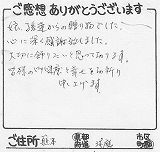 ご感想 ありがとうございます
娘、孫達からの贈り物でした。
心に深く感謝致しました。
大切に飾りたいと思っております。
皆様のご健康と幸せをお祈り
申し上げます
ご住所 都道府県 市区町村